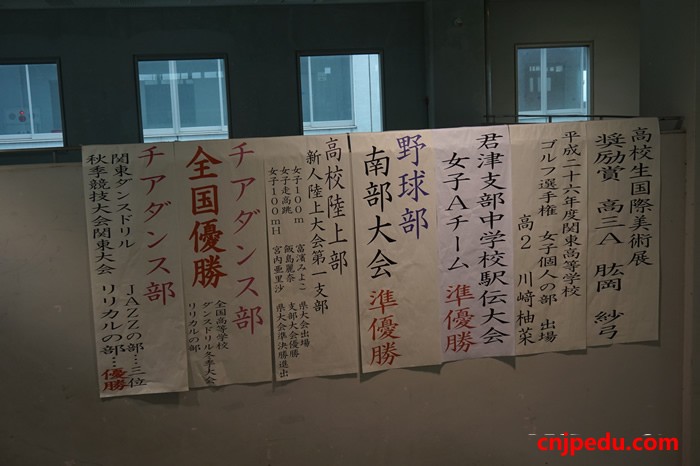 高校生国際美術展
奨励賞 高三A 肱岡 紗弓
平成二十六年度関東高等学校
ゴルフ選手権 女子個人の部 出場
高2 川崎 柚菜
君津支部中学校駅伝大会
女子Aチーム 準優勝
野球部
南部大会 準優勝
高校陸上部
新人陸上大会第一支部
女子100m 富濱みよこ 県大会出場
女子走高跳 飯島麗奈 支部大会優勝
女子100mH 宮内亜里沙 県大会準決勝進出
チアダンス部
全国優勝
全国高等学校
ダンスドリル冬季大会
リリカルの部
チアダンス部
関東ダンスドリル JAZZの部…三位
秋季競技大会関東大会 リリカルの部…優勝
cnjpedu.com